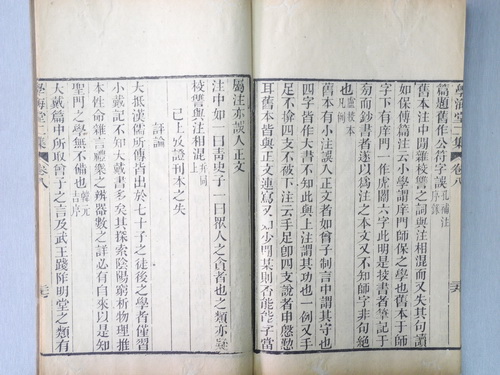 學海堂二集 卷八
篇題舊作公符字誤 孔補注序錄
舊本注中間雜校讐之詞與注相混而又失其句讀
如保傅篇注云小學謂庠門師保之學也舊本于師
字下有庠門一作虎闈六字此明是挍書者筆記于
旁而鈔書者遂以爲注之本文又不知師字非句絕
也 盧校本凡例
舊本有小注誤入正文者如曾子制言中謂其守也
四字皆作大書不知此與上注謂其功也一例又手
足不揜四支不被下注云手足卽四支說者申慇懃
耳舊本皆與正文連寫又如少閒某則否能能子當
屬注亦誤入正文
注中如一曰靑史子一曰人之貪者也之類亦疑
校讐與注相混 并同上
已上攷證刊本之失
評論
大抵漢儒所傳皆出於七十子之徒後之學者僅習
小戴記不知大戴書多矣其探索陰陽窮析物理推
本性命雜言禮樂之辨器數之詳必有自來以是知
聖門之學無不備也 韓元吉序
大戴篇中所取曾子之言及武王踐阼明堂之類有
學海堂二集 卷八